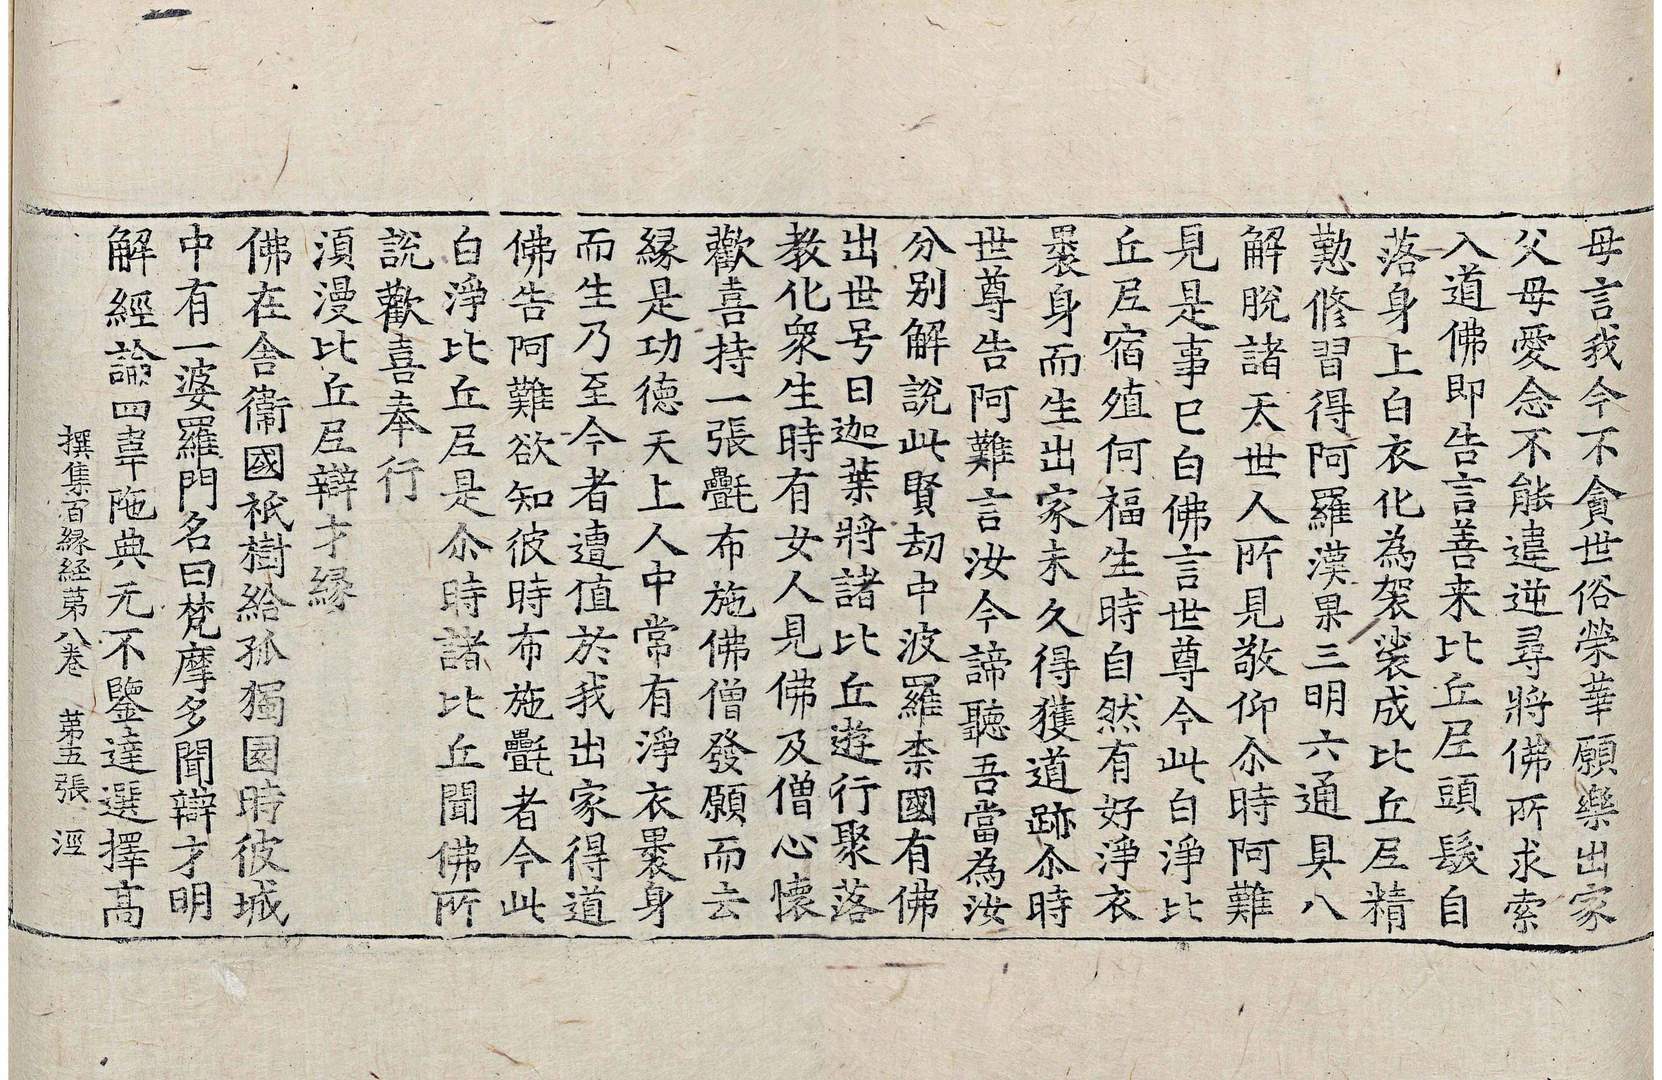 母言我今不貪世俗榮華願樂出家
父母愛念不能違逆尋將佛所求索
入道佛即告言善来比丘尼頭髮自
落身上白衣化為袈裟成比丘尼精
懃修習得阿羅漢果三明六通具八
解脫諸天世人所見敬仰尒時阿難
見是事已白佛言世尊今此白淨比
丘尼宿殖何福生時自然有好淨衣
褁身而生出家未久得獲道跡尒時
世尊告阿難言汝今諦聽吾當為汝
分別解說此賢劫中波羅㮈國有佛
出世号曰迦葉將諸比丘遊行聚落
教化衆生時有女人見佛及僧心懷
歡喜持一張㲲布施佛僧發願而去
緣是功德天上人中常有淨衣褁身
而生乃至今者遭值於我出家得道
佛告阿難欲知彼時布施㲲者今此
白淨比丘尼是尒時諸比丘聞佛所
說歡喜奉行
湏漫比丘尼辯才緣
佛在舍衛國祇樹給孤獨園時彼城
中有一婆羅門名曰梵摩多聞辯才明
解經論四韋陁典无不鑒達選擇高
撰集百緣経苐八卷　苐五張　涇